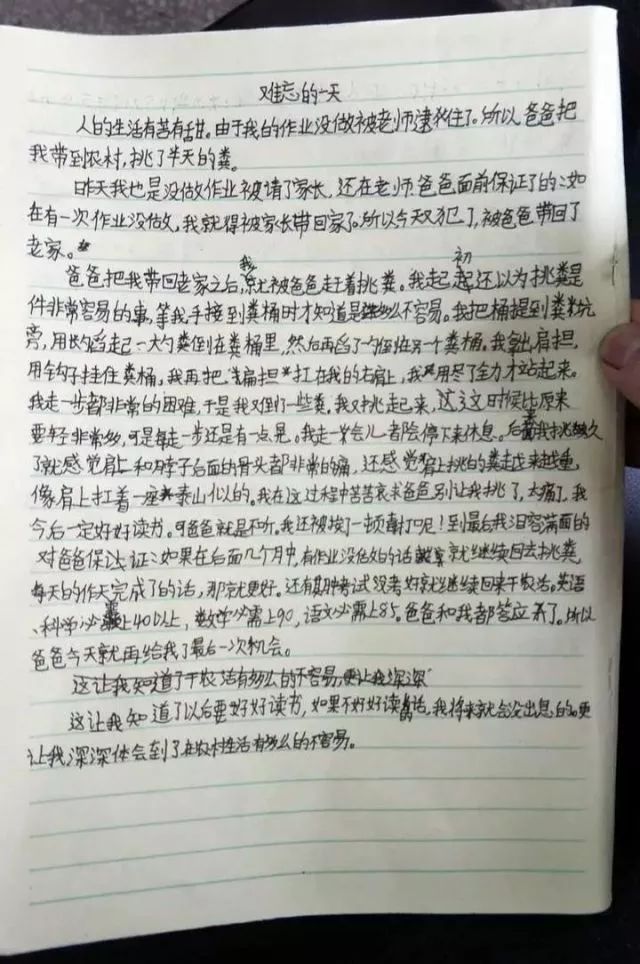 难忘的一天
人的生活有苦有甜。由于我的作业没做被老师逮住了。所以爸爸把
我带到农村,挑了半天的粪。
昨天我也是没做作业被请了家长,还在老师爸爸面前保证了的:如
在有一次作业没做,我就得被家长带回家了。所以今天又犯了,被爸爸带回了
老家。
爸爸把我带回老家之后,我就被爸爸赶着挑粪。我起初还以为挑粪是
件非常容易的事,等我手接到粪桶时才知道是多么不容易。我把桶提到粪坑
旁,用长勺舀起一大勺粪倒在粪桶里,然后再舀了勺倒在另一个粪桶。我拿出肩担,
用钩子挂住粪桶,我再把扁担扛在我的右肩上,我用尽了全力才站起来。
我走一步都非常的困难,于是我又倒了一些粪。我又挑起来,这这时候比原来
要轻非常多,可是每走一步还是有一点晃。我走一会儿者险停下来休息。后我挑久
了就感觉肩上和脖子后面的骨头都非常的痛,还感觉肩上挑的粪越来越重,
像肩上扛着一座泰山似的。我在这过程中苦苦哀求爸爸别让我挑了,太痛了,我
今后一定好好读书。可爸爸就是不听。我还被挨了一顿毒打呢!到最后我泪容满面的
对爸爸保证:如果在后面几个月中,有作业没做的话就继续回去挑粪,
每天的作天完成了的话,那就更好。还有期种考试没考好就继续回来干农活。英语
、科学必需上40以上,数学必需上90,语文必需上85。爸爸和我都答应了。所以
爸爸今天就再给我了最后一次机会。
这让我知道了干农活有多么的不容易,更让我深深
这让我知道了以后要好好读书,如果不好好读书的话,我将来就会没出息的。更
让我深深体会到了在农村生活有多么的不容易。